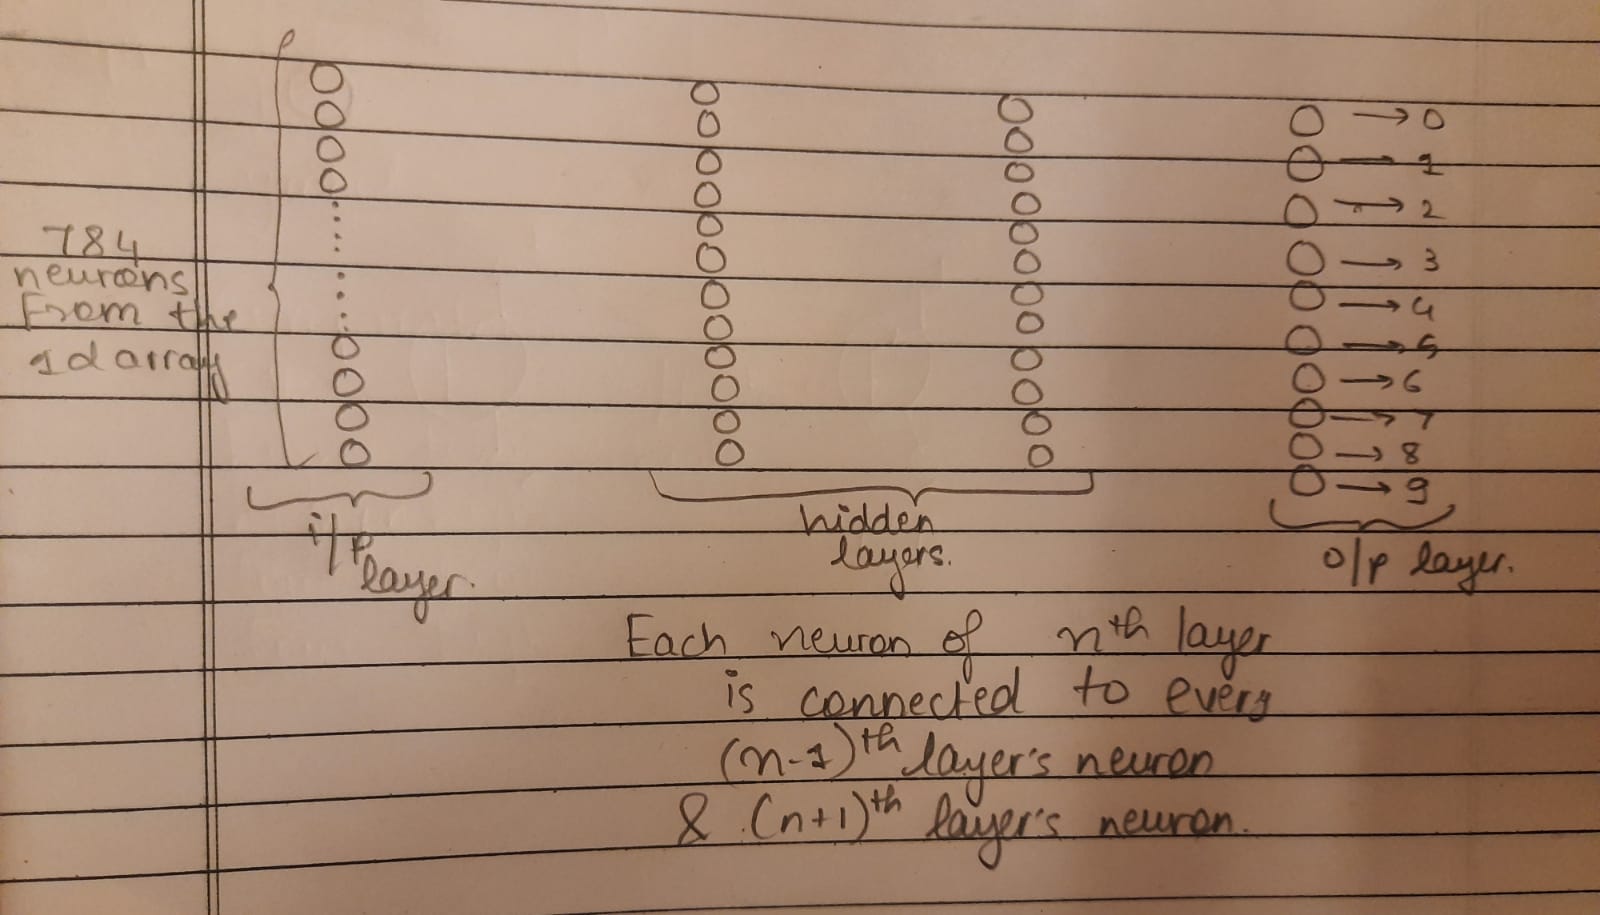 784
neurons
From the
1d array
→ 0
→ 1
→ 2
→ 3
→ 4
→ 5
→ 6
→ 7
→ 8
→ 9
i/p layer.
hidden
layers.
o/p layer.
Each neuron of nth layer
is connected to every
(n-1)th layer's neuron
& (n+1)th layer's neuron.